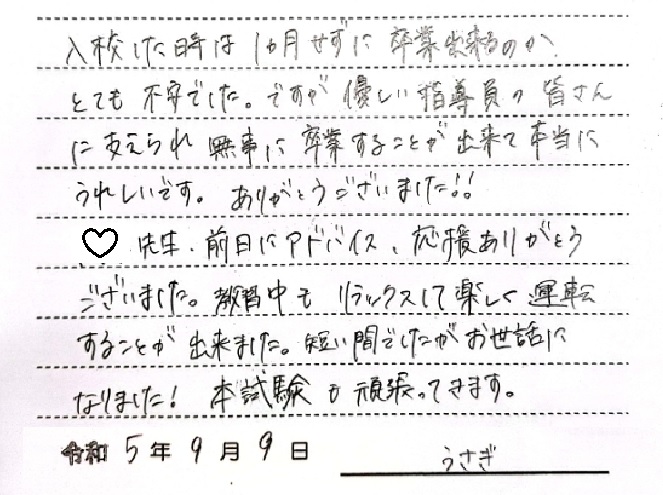 入校した時は1ヵ月せずに卒業出来るのか
とても不安でした。ですが優しい指導員の皆さん
に支えられ無事に卒業することが出来て本当に
うれしいです。ありがとうございました!!
♡先生、前日にアドバイス、応援ありがとう
ございました。教習中もリラックスして楽しく運転
することが出来ました。短い間でしたがお世話に
なりました!本試験も頑張ってきます。
令和5年9月9日 うさぎ